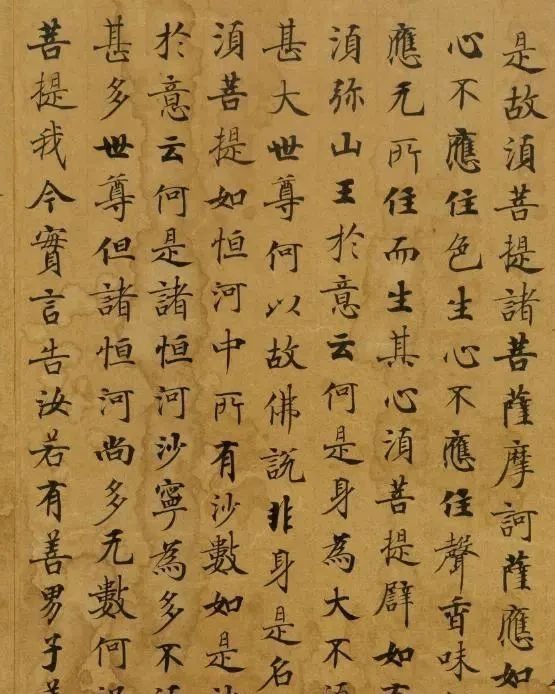 是故須菩提諸菩薩摩訶薩應如
心不應住色生心不應住聲香味
應无所住而生其心須菩提譬如
須弥山王於意云何是身為大不
甚大世尊何以故佛說非身是名
須菩提如恒河中所有沙數如是
於意云何是諸恒河沙寧為多不
甚多世尊但諸恒河尚多无數何
菩提我今實言告汝若有善男子